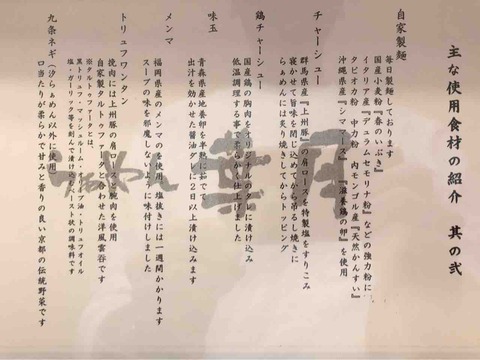 主な使用食材の紹介 其の弐
自家製麺
毎日製麺しております
国産小麦粉『春のいぶき』
イタリア産『デュラムセモリナ粉』などの強力粉に
タピオカ粉 中力粉 内モンゴル産『天然かんすい』
沖縄県産『シママース』 『滋養鶏の卵』を使用
チャーシュー
群馬県産『上州豚』の肩ロースを特製塩をすりこみ
寝かせて旨味を閉じ込めてから吊るし焼きに
らぁめんには炙り焼きしてからトッピング
鶏チャーシュー
国産鶏の胸肉をオリジナルのタレに漬け込み
低温調理する事で柔らかく仕上げました
味玉
青森県産地養卵を半熟に茹でて
出汁を効かせた醤油ダレに2日以上漬け込みます
メンマ
福岡県産のメンマのを使用 塩抜きには一週間かかります
スープの味を邪魔しないように味付けしました
トリュフワンタン
挽肉には上州豚の肩ロースと腕肉を使用
自家製タルトゥファータと合わせた洋風雲呑です
※タルトゥファータとは、
黒トリュフ・マッシュルーム・オリーブ油・トリュフオイル
塩・ガーリック等を刻んで漬け込んだペースト状の調味料です
九条ネギ(汐らぁめん以外に使用)
口当たりが柔らかで甘みと香りの良い京都の伝統野菜です